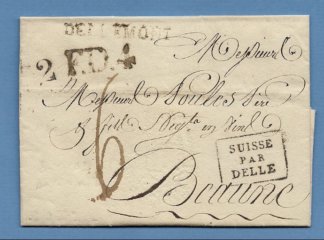 DELEMONT
2 F.D. 4
Messieurs
Messieurs Poulet Père
& fils Négts en Vins
6
SUISSE
PAR
DELLE
Beaune